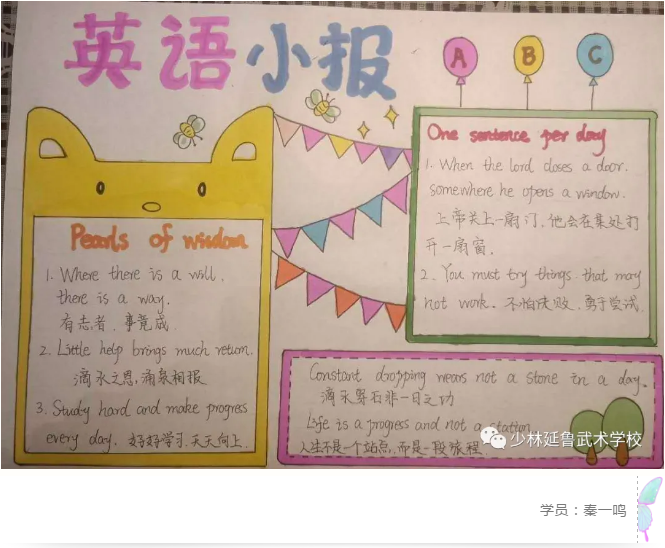 英语小报
A B C
Pearls of wisdom
1. Where there is a will,
there is a way.
有志者，事竟成
2. Little help brings much return.
滴水之恩，涌泉相报
3. Study hard and make progress
every day. 好好学习，天天向上.
One sentence per day
1. When the lord closes a door.
somewhere he opens a window.
上帝关上一扇门，他会在某处打
开一扇窗.
2. You must try things that may
not work. 不怕失败，勇于尝试.
Constant dropping wears not a stone in a day.
滴水穿石非一日之功
Life is a progress and not a station.
人生不是一个站点，而是一段旅程.
少林延鲁武术学校
学员：秦一鸣